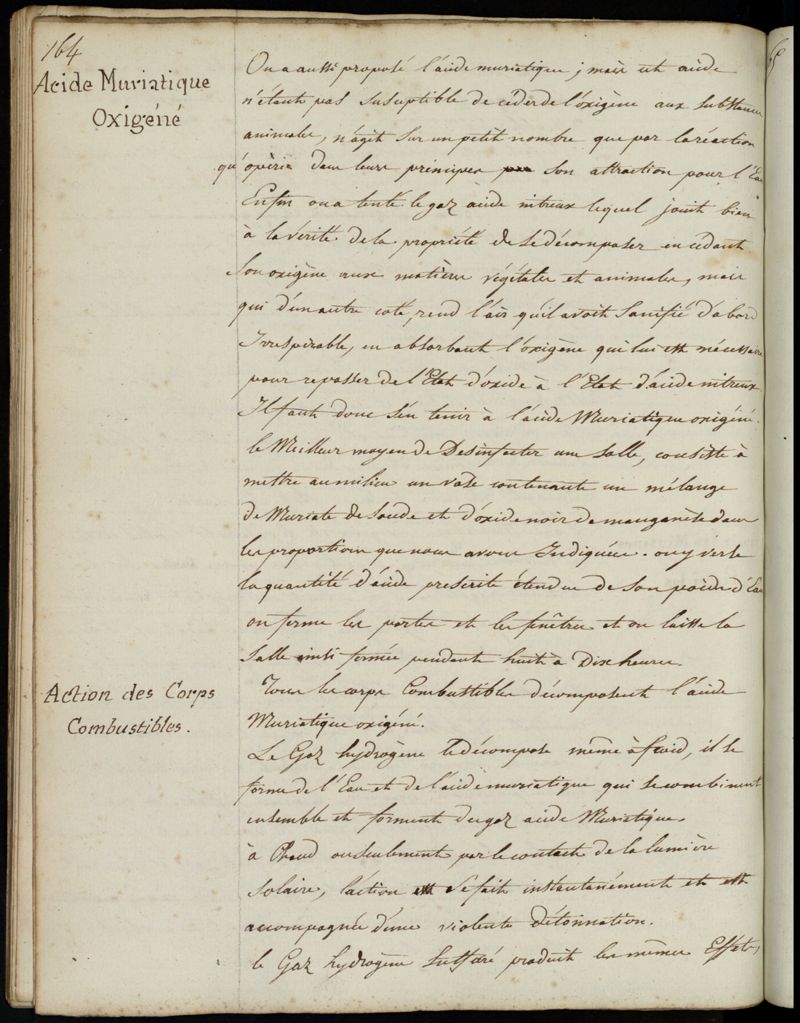 164
Acide Muriatique
Oxigéné
On a aussi proposé l'acide muriatique ; mais cet acide
n'étant pas susceptible de céder de l'oxigène aux substances
animales, n'agit sur un petit nombre que par la réaction
qu'opère dans leurs principes son attraction pour l'Eau
Enfin on a tenté le gaz acide nitreux lequel jouit bien
à la vérité de la propriété de se décomposer en cédant
son oxigène aux matières végétales et animales, mais
qui d'un autre coté, rend l'air qu'il avoit sanifié d'abord
Irrespirable, en absorbant l'oxigène qui lui est nécessaire
pour repasser de l'Etat d'oxide à l'Etat d'acide nitreux.
Il faut donc s'en tenir à l'acide Muriatique oxigéné.
le Meilleur moyen de Desinfecter une salle, consiste à
mettre au milieu un vase contenante un mélange
de Muriate de Soude et d'oxide noir de manganèse dans
les proportions que nous avons Indiquées. on y verse
la quantité d'acide prescrite étendue de son poids d'Eau
on ferme les portes et les fenêtres et on laisse la
Salle ainsi fermée pendant huit à Dix heures.
Action des Corps
Combustibles.
Tous les corps Combustibles décomposent l'acide
Muriatique oxigéné.
Le Gaz hydrogène le décompose même à froid, il se
forme de l'Eau et de l'acide muriatique qui se combinent
ensemble et forment du gaz acide Muriatique.
à Chaud ou seulement par le contact de la lumière
Solaire, l'action se fait instantanément et est
accompagnée d'une violente détonnation.
le Gaz hydrogène Sulfuré produit les mêmes Effets,